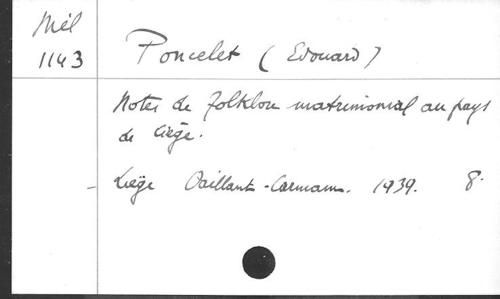 Mél
1143
Poncelet (Edouard)
Notes de folklore matrimonial au pays
de Liège.
Liège Vaillant-Carmann. 1939. 8.